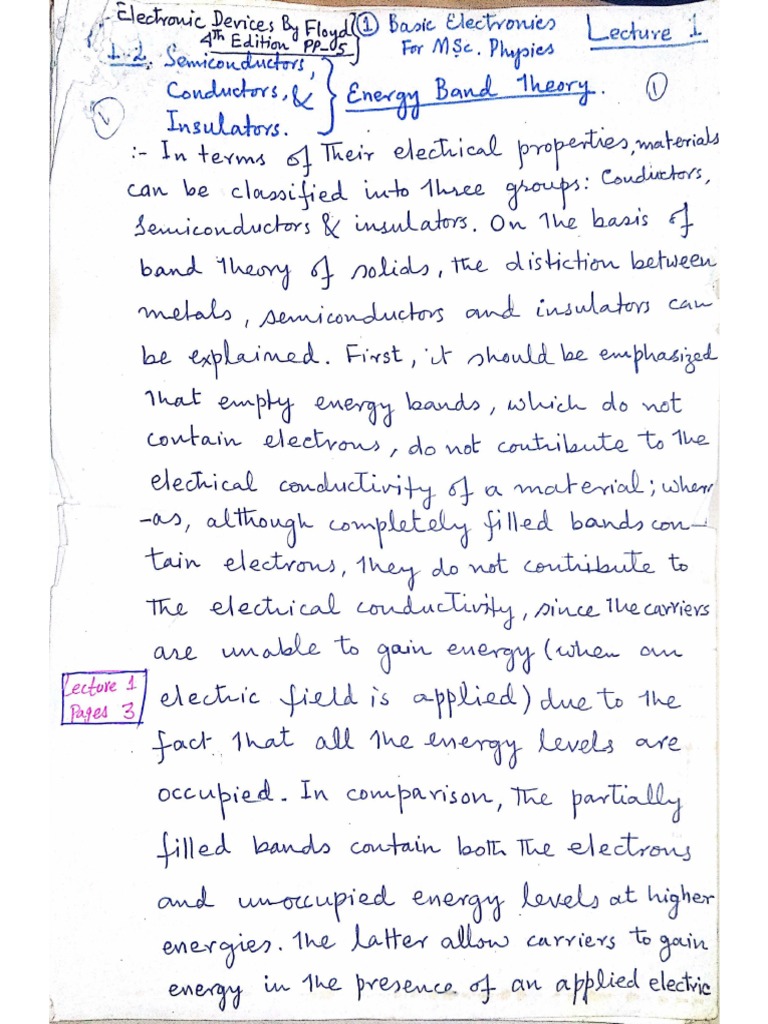 Electronic Devices By Floyd ① Basic Electronics Lecture 1
4th Edition PP_5 For MSc. Physics
1.2. Semiconductors,
Conductors, & Energy Band Theory. ①
Insulators.
:- In terms of Their electrical properties, materials
can be classified into three groups: Conductors,
Semiconductors & insulators. On the basis of
band theory of solids, the distiction between
metals, semiconductors and insulators can
be explained. First, it should be emphasized
that empty energy bands, which do not
contain electrons, do not contribute to the
electrical conductivity of a material; where
-as, although completely filled bands con-
tain electrons, they do not contribute to
the electrical conductivity, since the carriers
are unable to gain energy (when an
Lecture 1
Pages 3
electric field is applied) due to the
fact that all the energy levels are
occupied. In comparison, the partially
filled bands contain both the electrons
and unoccupied energy levels at higher
energies. The latter allow carriers to gain
energy in the presence of an applied electric